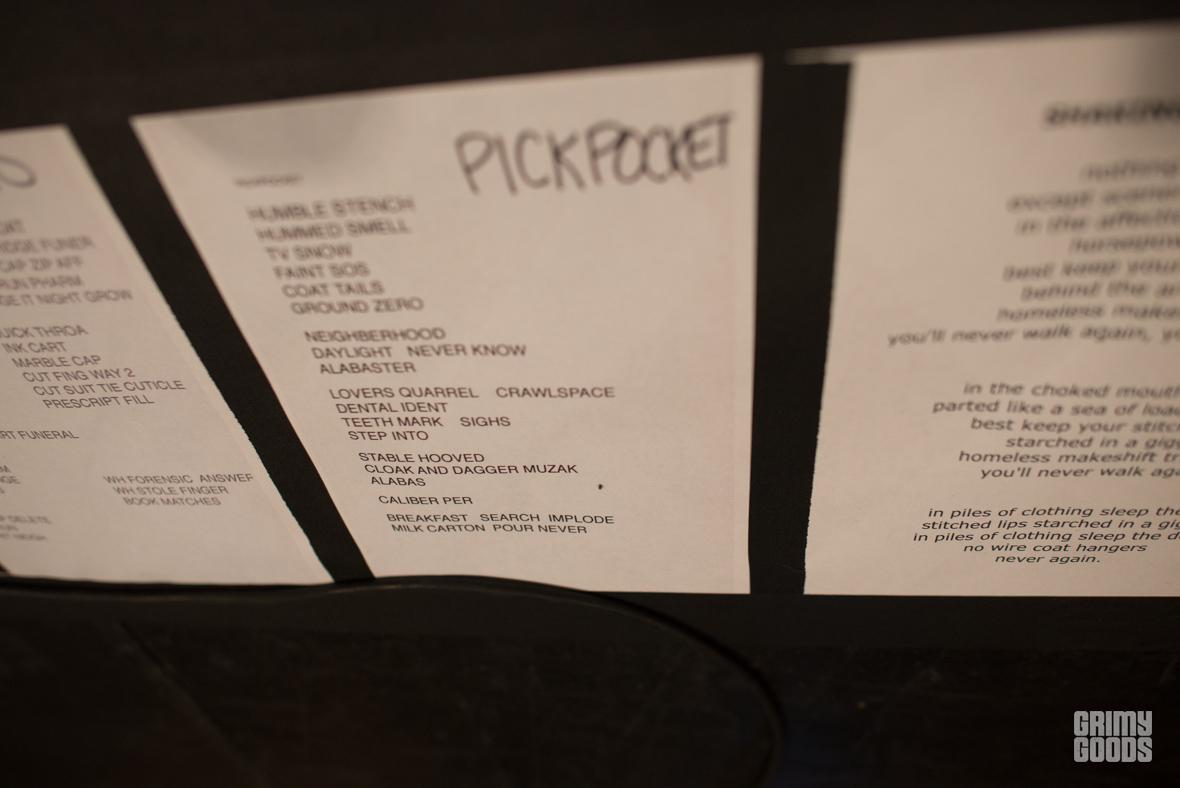 RIDGE FUNER
CAP ZIP AFF
RUN PHARM
IT NIGHT GROW
QUICK THROA
INK CART
MARBLE CAP
CUT FING WAY 2
CUT SUIT TIE CUTICLE
PRESCRIPT FILL
FUNERAL
WH FORENSIC ANSWEF
WH STOLE FINGER
BOOK MATCHES
DELETE
PICKPOCKET
HUMBLE STENCH
HUMMED SMELL
TV SNOW
FAINT SOS
COAT TAILS
GROUND ZERO
NEIGHBERHOOD
DAYLIGHT NEVER KNOW
ALABASTER
LOVERS QUARREL CRAWLSPACE
DENTAL IDENT
TEETH MARK SIGHS
STEP INTO
STABLE HOOVED
CLOAK AND DAGGER MUZAK
ALABAS
CALIBER PER
BREAKFAST SEARCH IMPLODE
MILK CARTON POUR NEVER
nothing
except
in the
best keep your
behind the
homeless
you'll never walk again,
in the choked
parted like a sea of
best keep your
starched in a
homeless makeshift
you'll never walk
in piles of clothing sleep
stitched lips starched in a
in piles of clothing sleep the
no wire coat hangers
never again.
GRIMY
GOODS